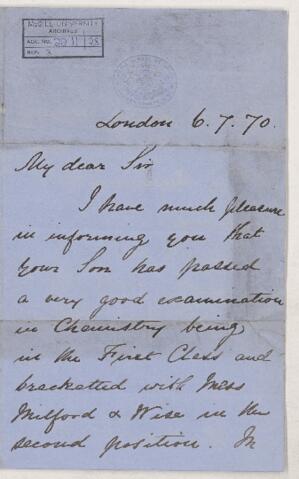 McGILL UNIVERSITY
ARCHIVES
ACC. NO.
REF. 2
London 6.7.70.
My dear Sir
I have much pleasure
in informing you that
your Son has passed
a very good examination
in Chemistry being
in the First Class and
bracketted with Mess
Milford & Wise in the
second position. In